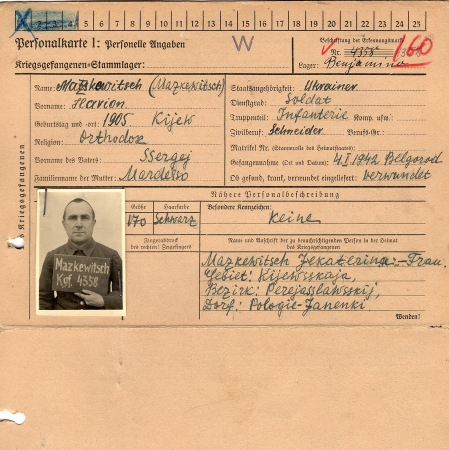 X 1 2 3 4 5 6 7 8 9 10 11 12 13 14 15 16 17 18 19 20 21 22 23 24 25
Personalkarte I: Personelle Angaben
W
Beschriftung der Erkennungsmarke
Nr. 4358
160
Kriegsgefangenen-Stammlager:
Lager: Benjamino
Name: Mazkewitsch (Mazkewitsch)
Vorname: Ilarion
Geburtstag und -ort: 1905 Kijew
Religion: Orthodox
Vorname des Vaters: Ssergej
Familienname der Mutter:
Staatsangehörigkeit: Ukrainer
Dienstgrad: Soldat
Truppenteil: Infanterie Komp. usw.:
Zivilberuf: Schneider Berufs-Gr.:
Matrikel Nr. (Stammrolle des Heimatstaates):
Gefangennahme (Ort und Datum): 4.I.1942 Belgorod
Ob gesund, krank, verwundet eingeliefert: verwundet
Des Kriegsgefangenen
Nähere Personalbeschreibung
Größe Haarfarbe
170 Schwarz
Besondere Kennzeichen:
Keine
Fingerabdruck
des rechten Zeigefingers
Name und Anschrift der zu benachrichtigenden Person in der Heimat
des Kriegsgefangenen
Mazkewitsch Jekaterina - Frau.
Gebiet: Kijewsskaja,
Bezirk: Perejasslawsskij,
Dorf: Pologie-Janenki
Wenden!
Mazkewitsch
Kgf. 4358